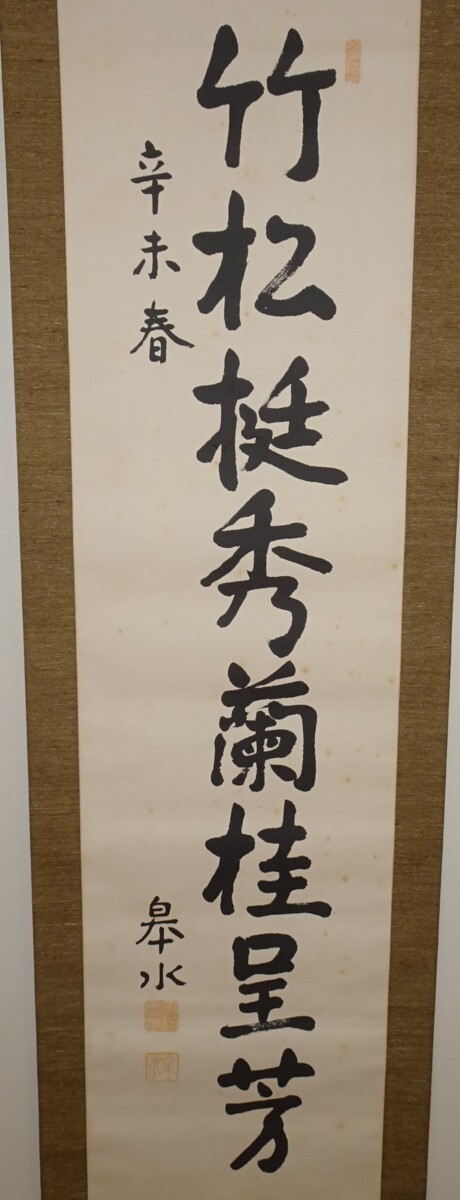 竹松挺秀蘭桂呈芳
辛未春
皐水